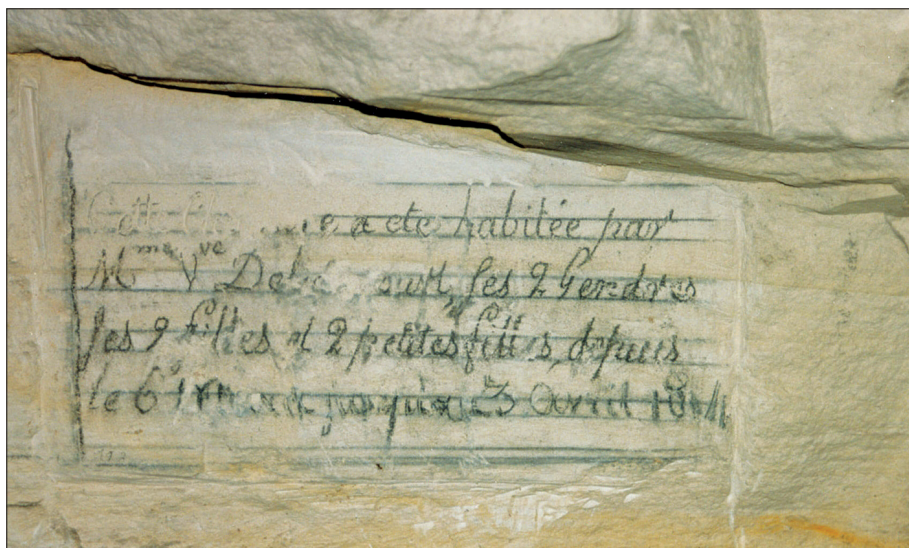 Cette a été habitée par
Mme Vve ses 2 Gendres
ses 9 filles et 2 petites filles, depuis
le 6 jusqu'à 3 avril 1814